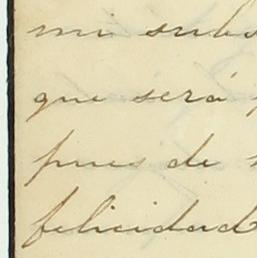 mi
que será
pues de
felicidad